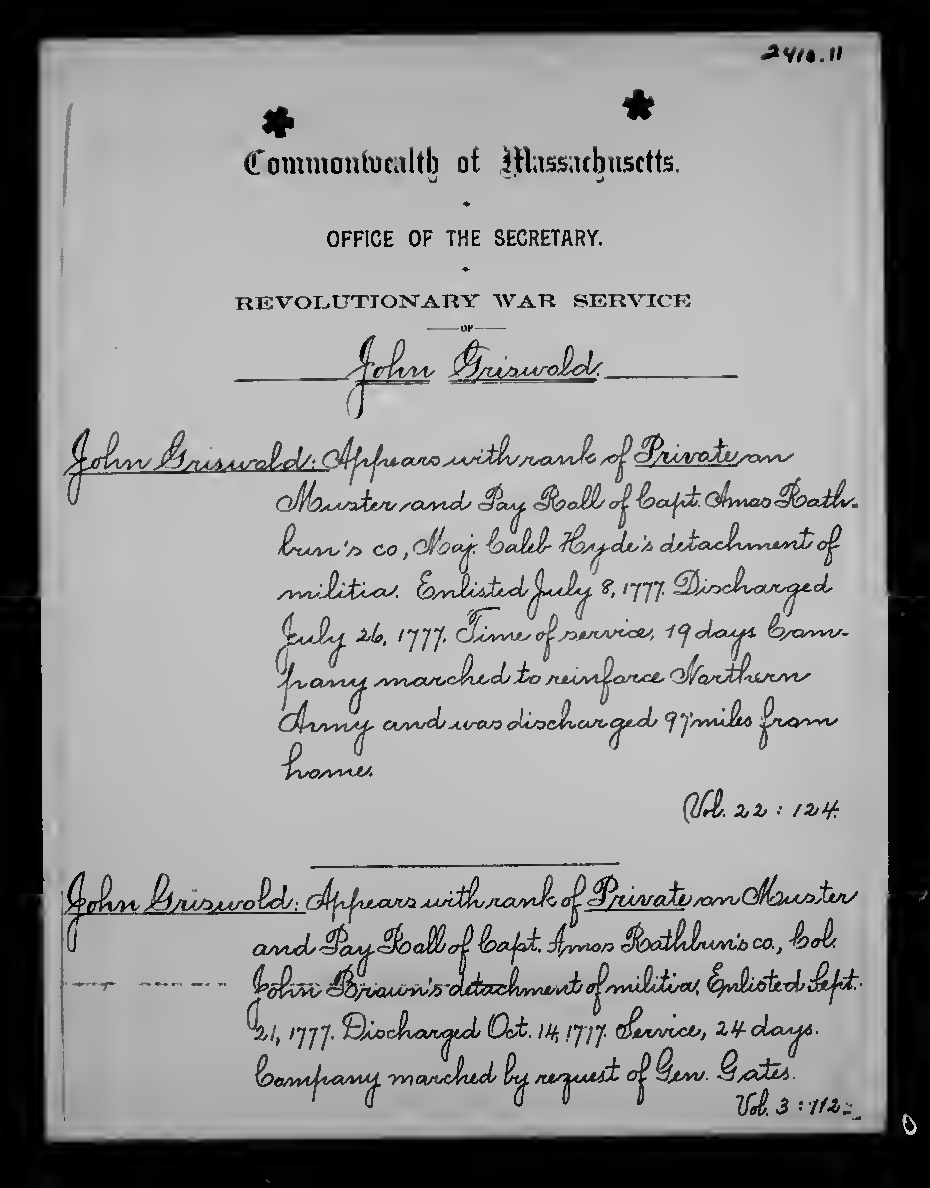 2410.11
Commonwealth of Massachusetts.
OFFICE OF THE SECRETARY.
REVOLUTIONARY WAR SERVICE
OF
John Griswold.
John Griswold: Appears with rank of Private on
Muster and Pay Roll of Capt. Amos Rath-
bun's co, Maj. Caleb Hyde's detachment of
militia. Enlisted July 8, 1777. Discharged
July 26, 1777. Time of service, 19 days Com-
pany marched to reinforce Northern
Army and was discharged 97 miles from
home.
Vol. 22 : 124.
John Griswold: Appears with rank of Private on Muster
and Pay Roll of Capt. Amos Rathbun's co., Col.
John Brown's detachment of militia, Enlisted Sept.
21, 1777. Discharged Oct. 14, 1777. Service, 24 days.
Company marched by request of Gen. Gates.
Vol. 3 : 112